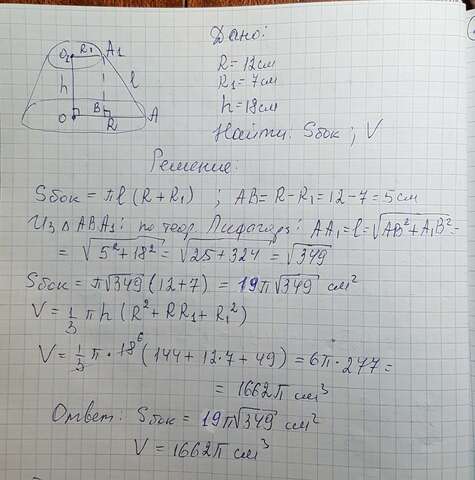 O₁ R₁ A₁
h l
B
O R A
Дано:
R = 12 см
R₁ = 7 см
h = 18 см
Найти: Sбок ; V
Решение.
Sбок = πl (R + R₁) ; AB = R - R₁ = 12 - 7 = 5 см
Из Δ ABA₁: по теор. Пифагора: AA₁ = l = √(AB² + A₁B²) =
= √(5² + 18²) = √(25 + 324) = √349
Sбок = π√349 (12 + 7) = 19π√349 см²
V = 1/3 πh (R² + RR₁ + R₁²)
V = 1/3 π · 18⁶ (144 + 12 · 7 + 49) = 6π · 277 =
= 1662π см³
Ответ: Sбок = 19π√349 см²
V = 1662π см³